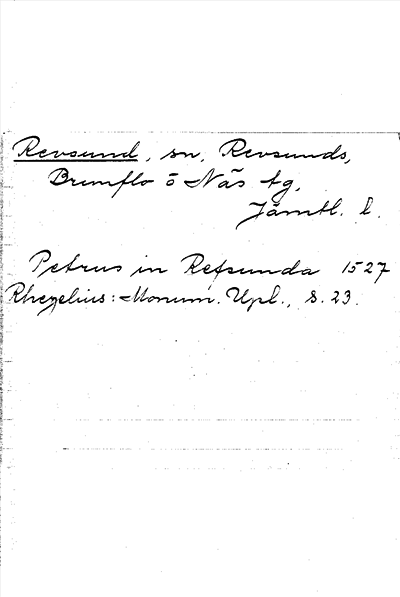 Revsund, sn, Revsunds,
Brunflo o Näs tg,
Jämtl. l.
Petrus in Refsunda 1527
Rhezelius: Monum. Upl., s. 23.